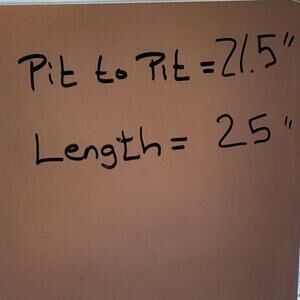 Pit to Pit = 21.5"
Length = 25"